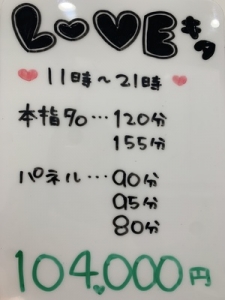 LOVEキタ
11時～21時
本指90…120分
155分
パネル…90分
95分
80分
104,000円